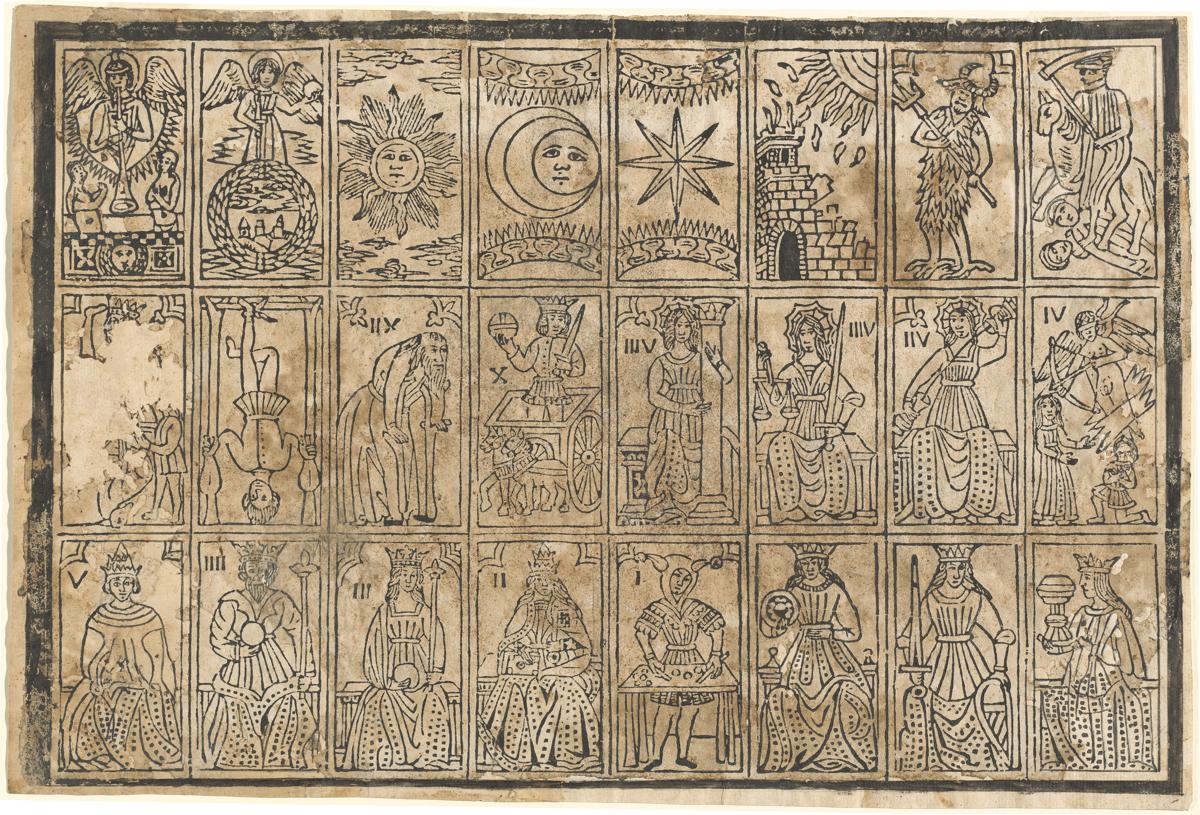 IIX
X
IIIV
IIIV
IIV
IV
V
IIII
III
II
I